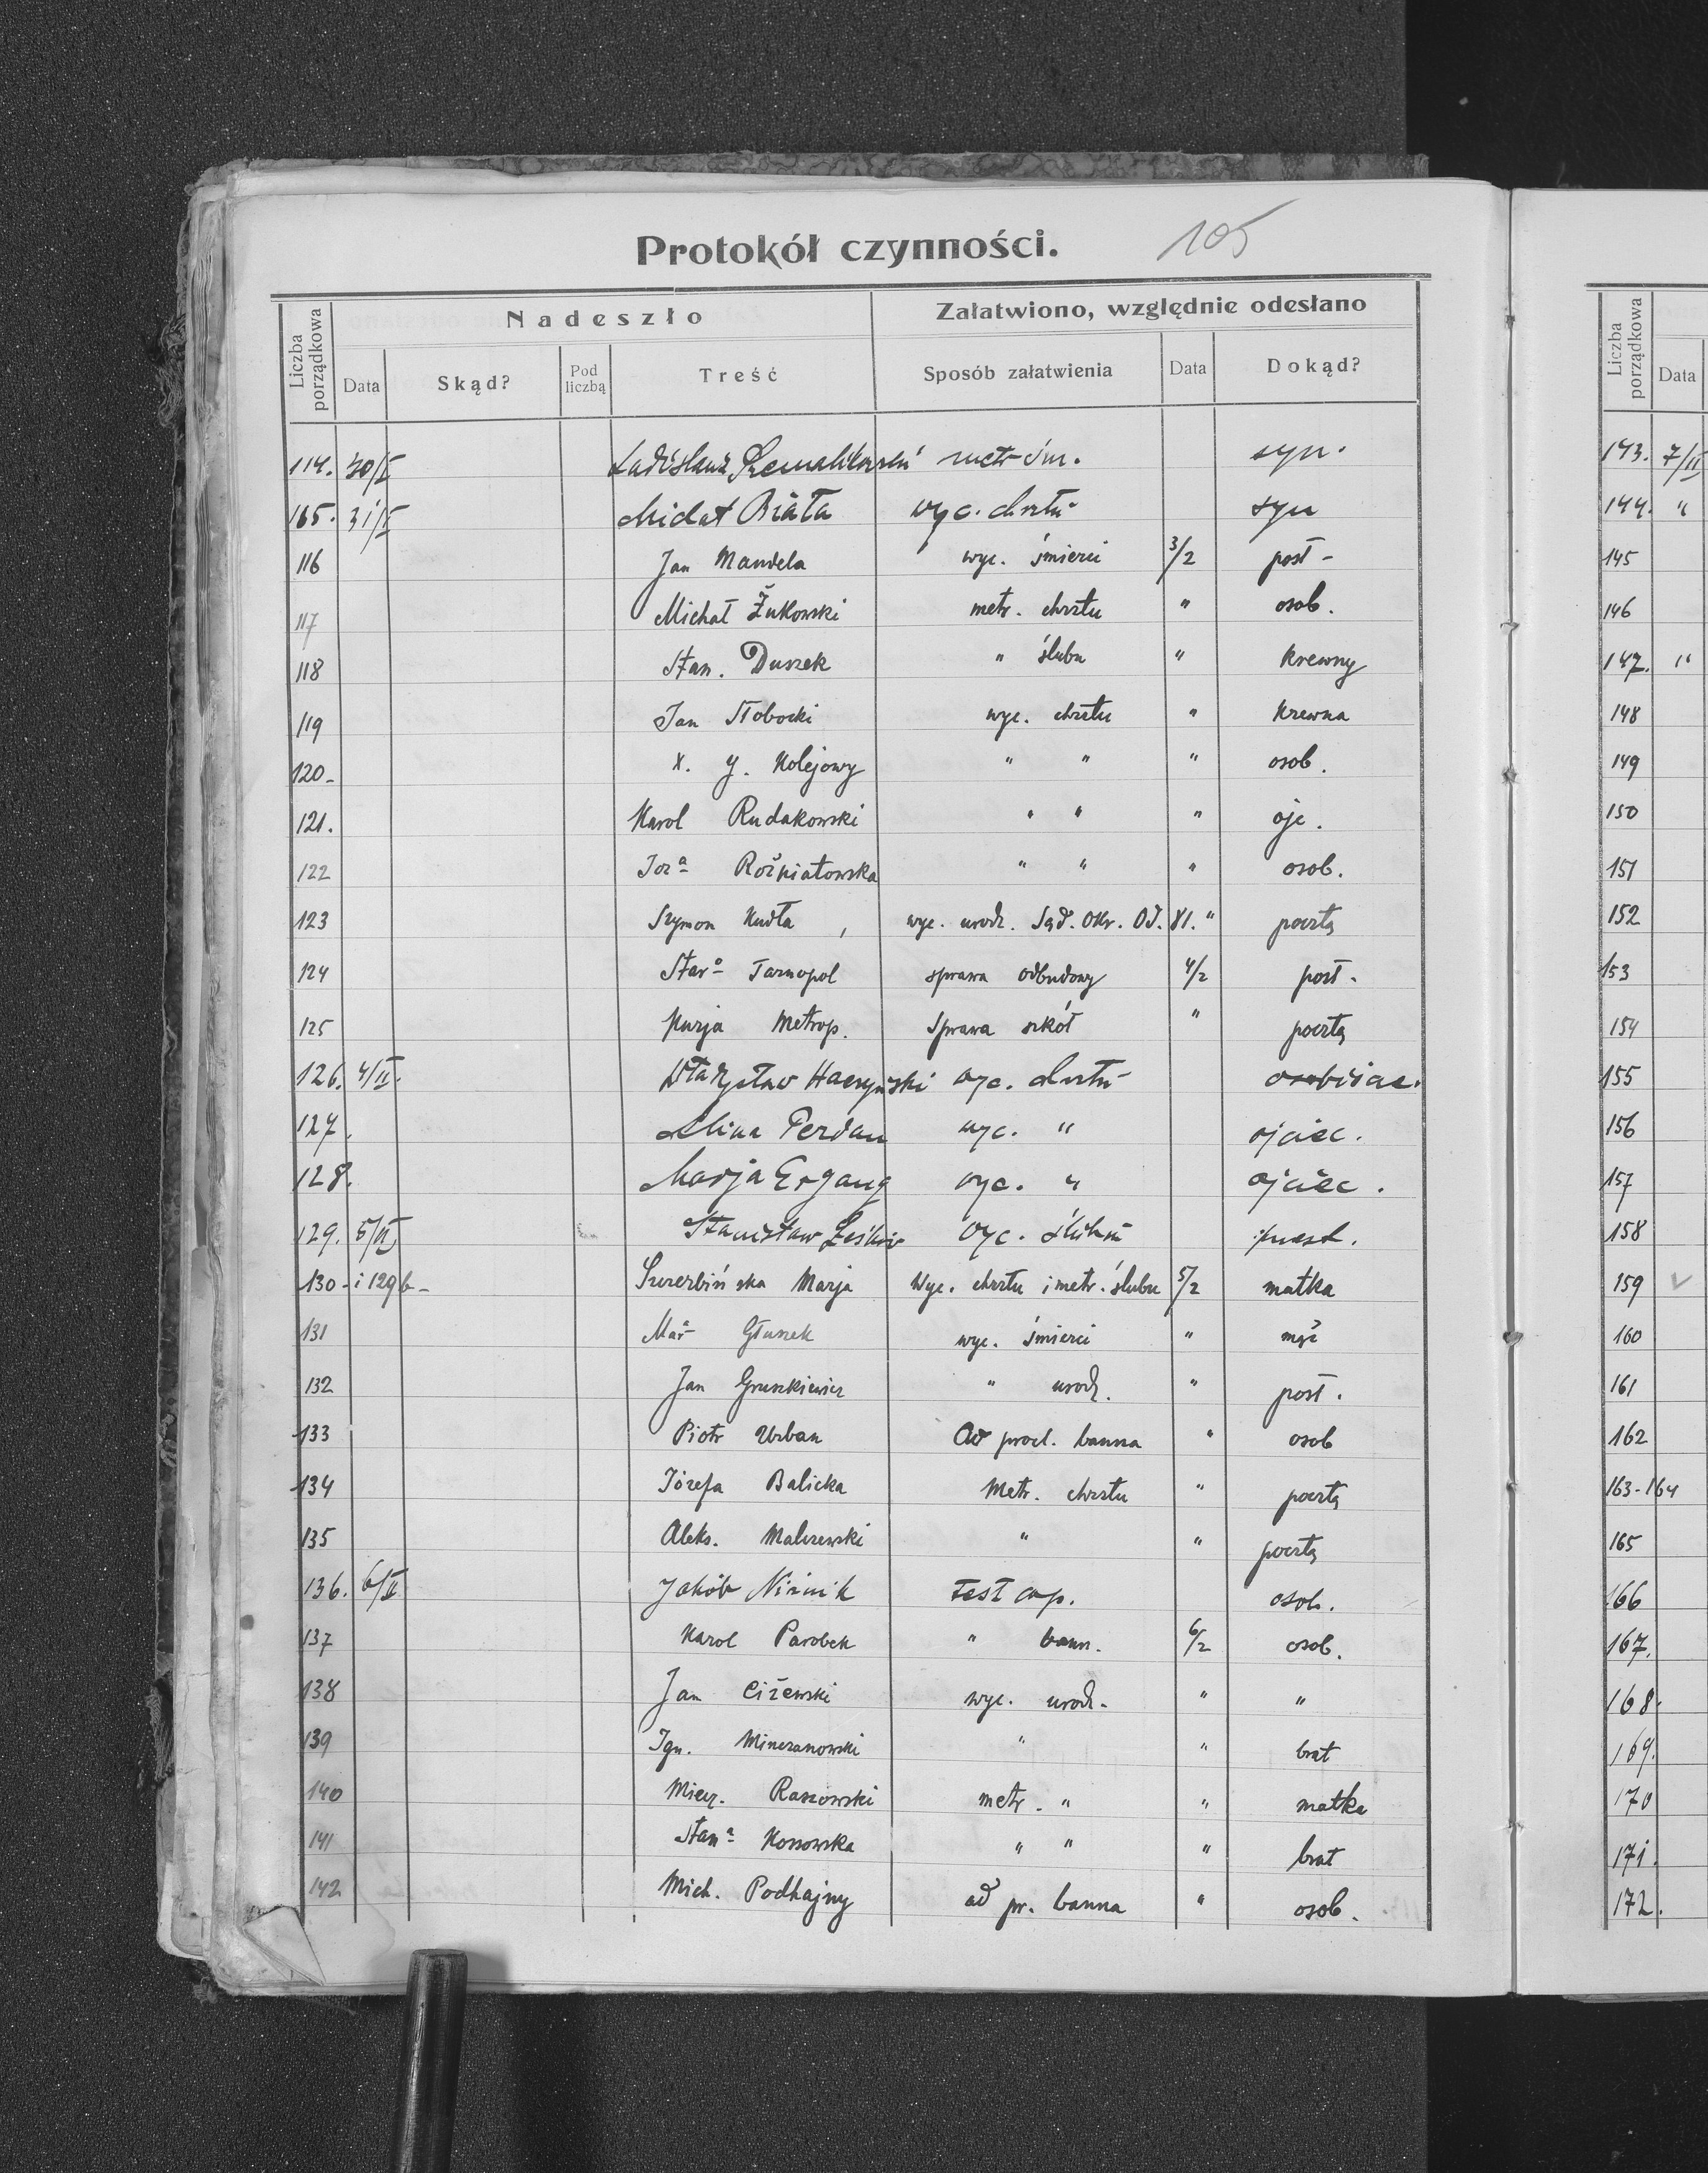 Protokół czynności. 105
Nadeszło Załatwiono, względnie odesłano
Liczba porządkowa Data Skąd? Pod liczbą Treść Sposób załatwienia Data Dokąd?
Liczba porządkowa Data
114. 30/I Ladislaus metr śm. syn.
165. 31/I Michał Biała wyc. chrztu syn
116 Jan Mandela wyc. śmierci 3/2 post -
117 Michał Żukowski metr. chrztu " osob.
118 Stan. Duszek " ślubu " krewny
119 Jan Słobocki wyc. chrztu " krewna
120- X. y. Kolejowy " " " osob.
121. Karol Rudakowski " " " ojc.
122 Józa Rożniatowska " " " osob.
123 Szymon Kudła , wyc. urodz. Sąd. Okr. Od. 81. " pocztą
124 Staro Tarnopol sprawa odbudowy 4/2 post.
125 Kurja Metrop. sprawa szkół " pocztą
126. 4/II. Władysław Haczyński wyc. chrztu osobiście.
127. Perdan wyc. " ojciec.
128. Marja Ergang wyc. " ojciec.
129. 5/II Stanisław wyc. ślubu
130 - i 129b - Szczerbińska Marja Wyc. chrztu i metr. ślubu 5/2 matka
131 Mar Głuszek wyc. śmierci " mąż
132 Jan Gruszkiewicz " urodz. " post.
133 Piotr Urban Ad procl. banna " osob
134 Józefa Balicka Metr. chrztu " pocztą
135 Aleks. Malczewski " " pocztą
136. 6/II Jakób Niźnik Test cop. osob.
137 Karol Parobek " bann. 6/2 osob.
138 Jan Ciżewski wyc. urodz. " "
139 Ign. Minczanowski " " brat
140 Miecz. Raszowski metr. " " matka
141 Stana Kossowska " " " brat
142 Mich. Podhajny ad pr. banna " osob.
143. 7/II
144. "
145
146
147. "
148
149
150
151
152
153
154
155
156
157
158
159 v
160
161
162
163-164
165
166
167.
168.
169.
170
171.
172.